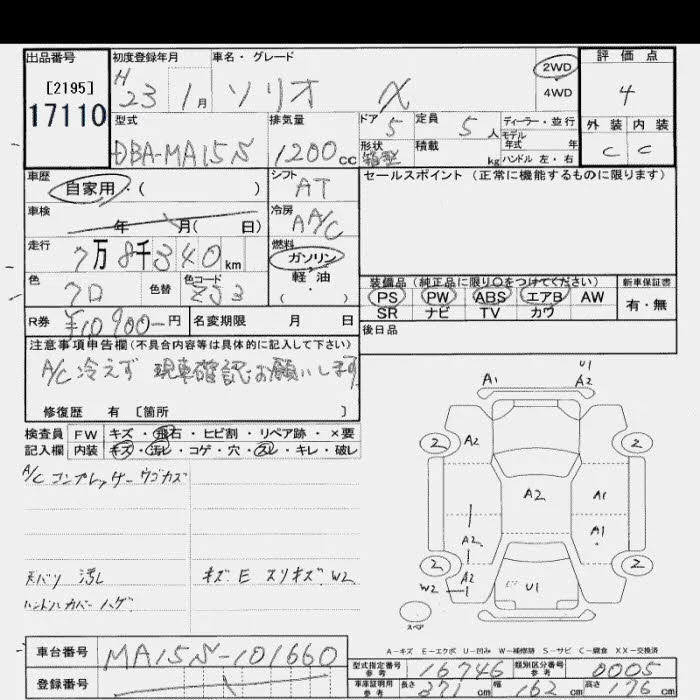 出品番号 初度登録年月 車名・グレード 2WD 4WD 評価点
[2195] H 23 1月 ソリオ X 4
17110 型式 排気量 ドア 5 定員 5人 ディーラー・並行 外装 内装
モデル年式 年
DBA-MA15S 1200cc 形状 箱型 積載 kg ハンドル 左・右 C C
車歴 自家用・( ) シフト AT セールスポイント (正常に機能するものに限ります)
車検 年 月( 日) 冷房 AA/C
走行 7万8千340km 燃料 ガソリン 軽・油 (・)
色 クロ 色替 色コード ZJ3
装備品 (純正品に限り〇をつけてください) 新車保証書
PS PW ABS エアB AW 有・無
SR ナビ TV カワ
R券 ¥10900-円 名変期限 月 日 後日品
注意事項申告欄(不具合内容等は具体的に記入して下さい)
A/C冷えず 現車確認お願いします
修復歴 有 [箇所 ]
検査員 FW キズ・飛石・ヒビ割・リペア跡・×要
記入欄 内装 キズ・汚レ・コゲ・穴・スレ・キレ・破レ
A/C コンプレッサー ウゴカズ
天バリ 汚レ キズ E スリキズ W2
ハンドルカバー ハゲ
A1 U1 A2
2 A2 2
A2 A1
A1
A2
2 A2 2
W2 U1
スペア
A-キズ E-エクボ U-凹み W-補修跡 S-サビ C-腐食 XX-交換済
車台番号 MA15S-101660
登録番号
型式指定番号 参考 16746 類別区分番号 参考 0005
車庫証明用 参考 長さ 371cm 幅 162cm 高さ 176cm